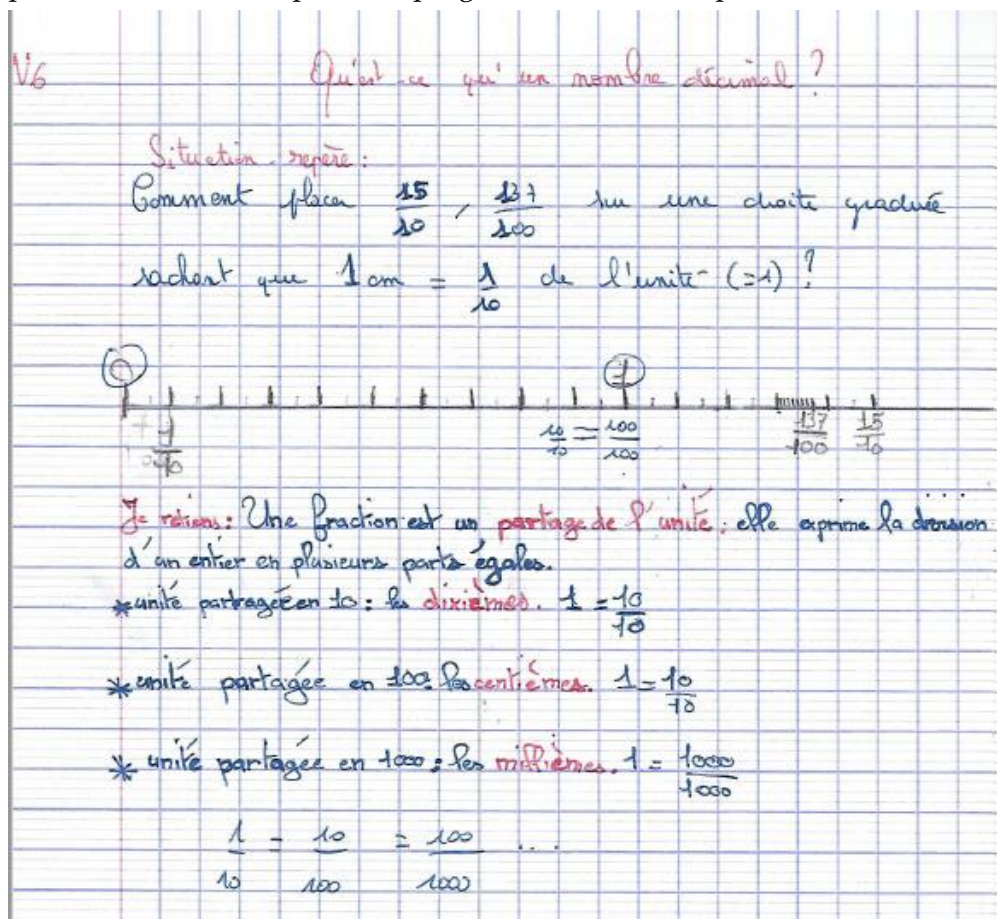 V6 Qu'est-ce qu'un nombre décimal ?
Situation-repère :
Comment placer 15/10, 137/100 sur une droite graduée
sachant que 1 cm = 1/10 de l'unité (=1) ?
0 1
1/10 10/10 = 100/100 137/100 15/10
Je retiens : Une fraction est un partage de l'unité : elle exprime la division
d'un entier en plusieurs parts égales.
* unité partagée en 10 : les dixièmes. 1 = 10/10
* unité partagée en 100 : les centièmes. 1 = 10/10
* unité partagée en 1000 : les millièmes. 1 = 1000/1000
1/10 = 10/100 = 100/1000 ...